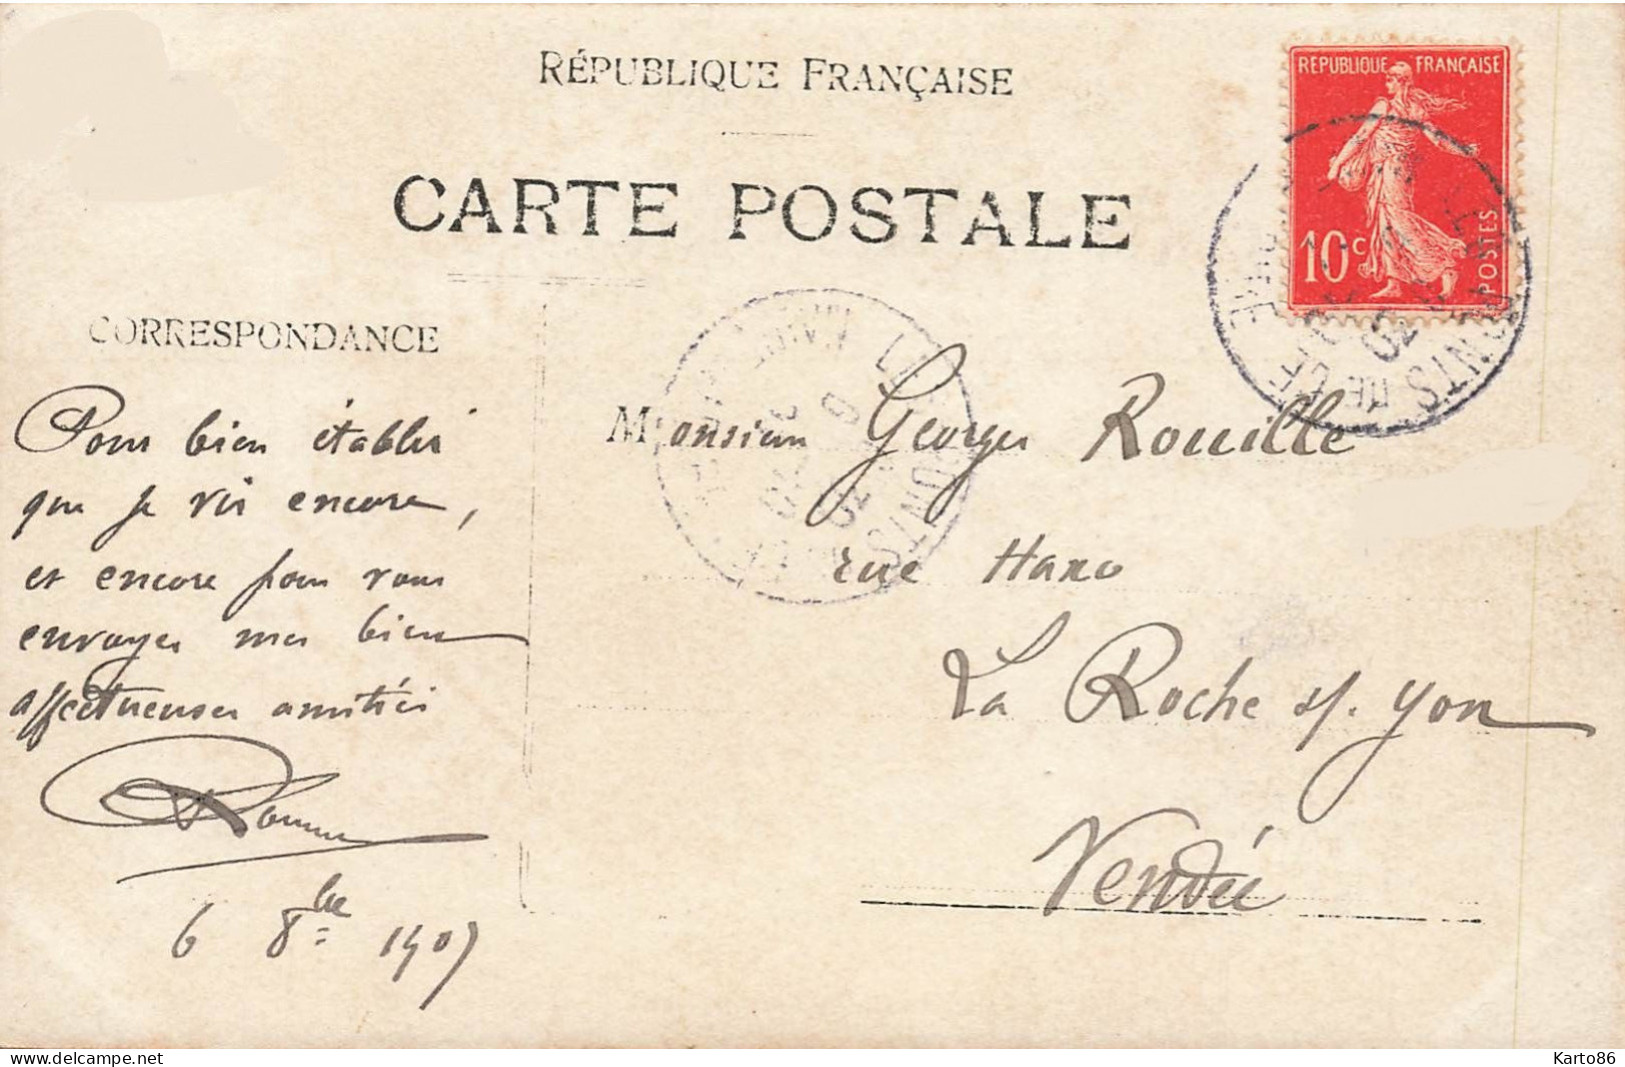 RÉPUBLIQUE FRANÇAISE
CARTE POSTALE
RÉPUBLIQUE FRANÇAISE
10 c
POSTES
CORRESPONDANCE
Pour bien établir
que je vis encore,
et encore pour vous
envoyer mes bien
affectueuses amitiés
6 8bre 1907
Monsieur Georges Rouillé
rue Haxo
La Roche s/. Yon
Vendée
PONTS DE CÉ
07
PONTS
07
www.delcampe.net
Karto86